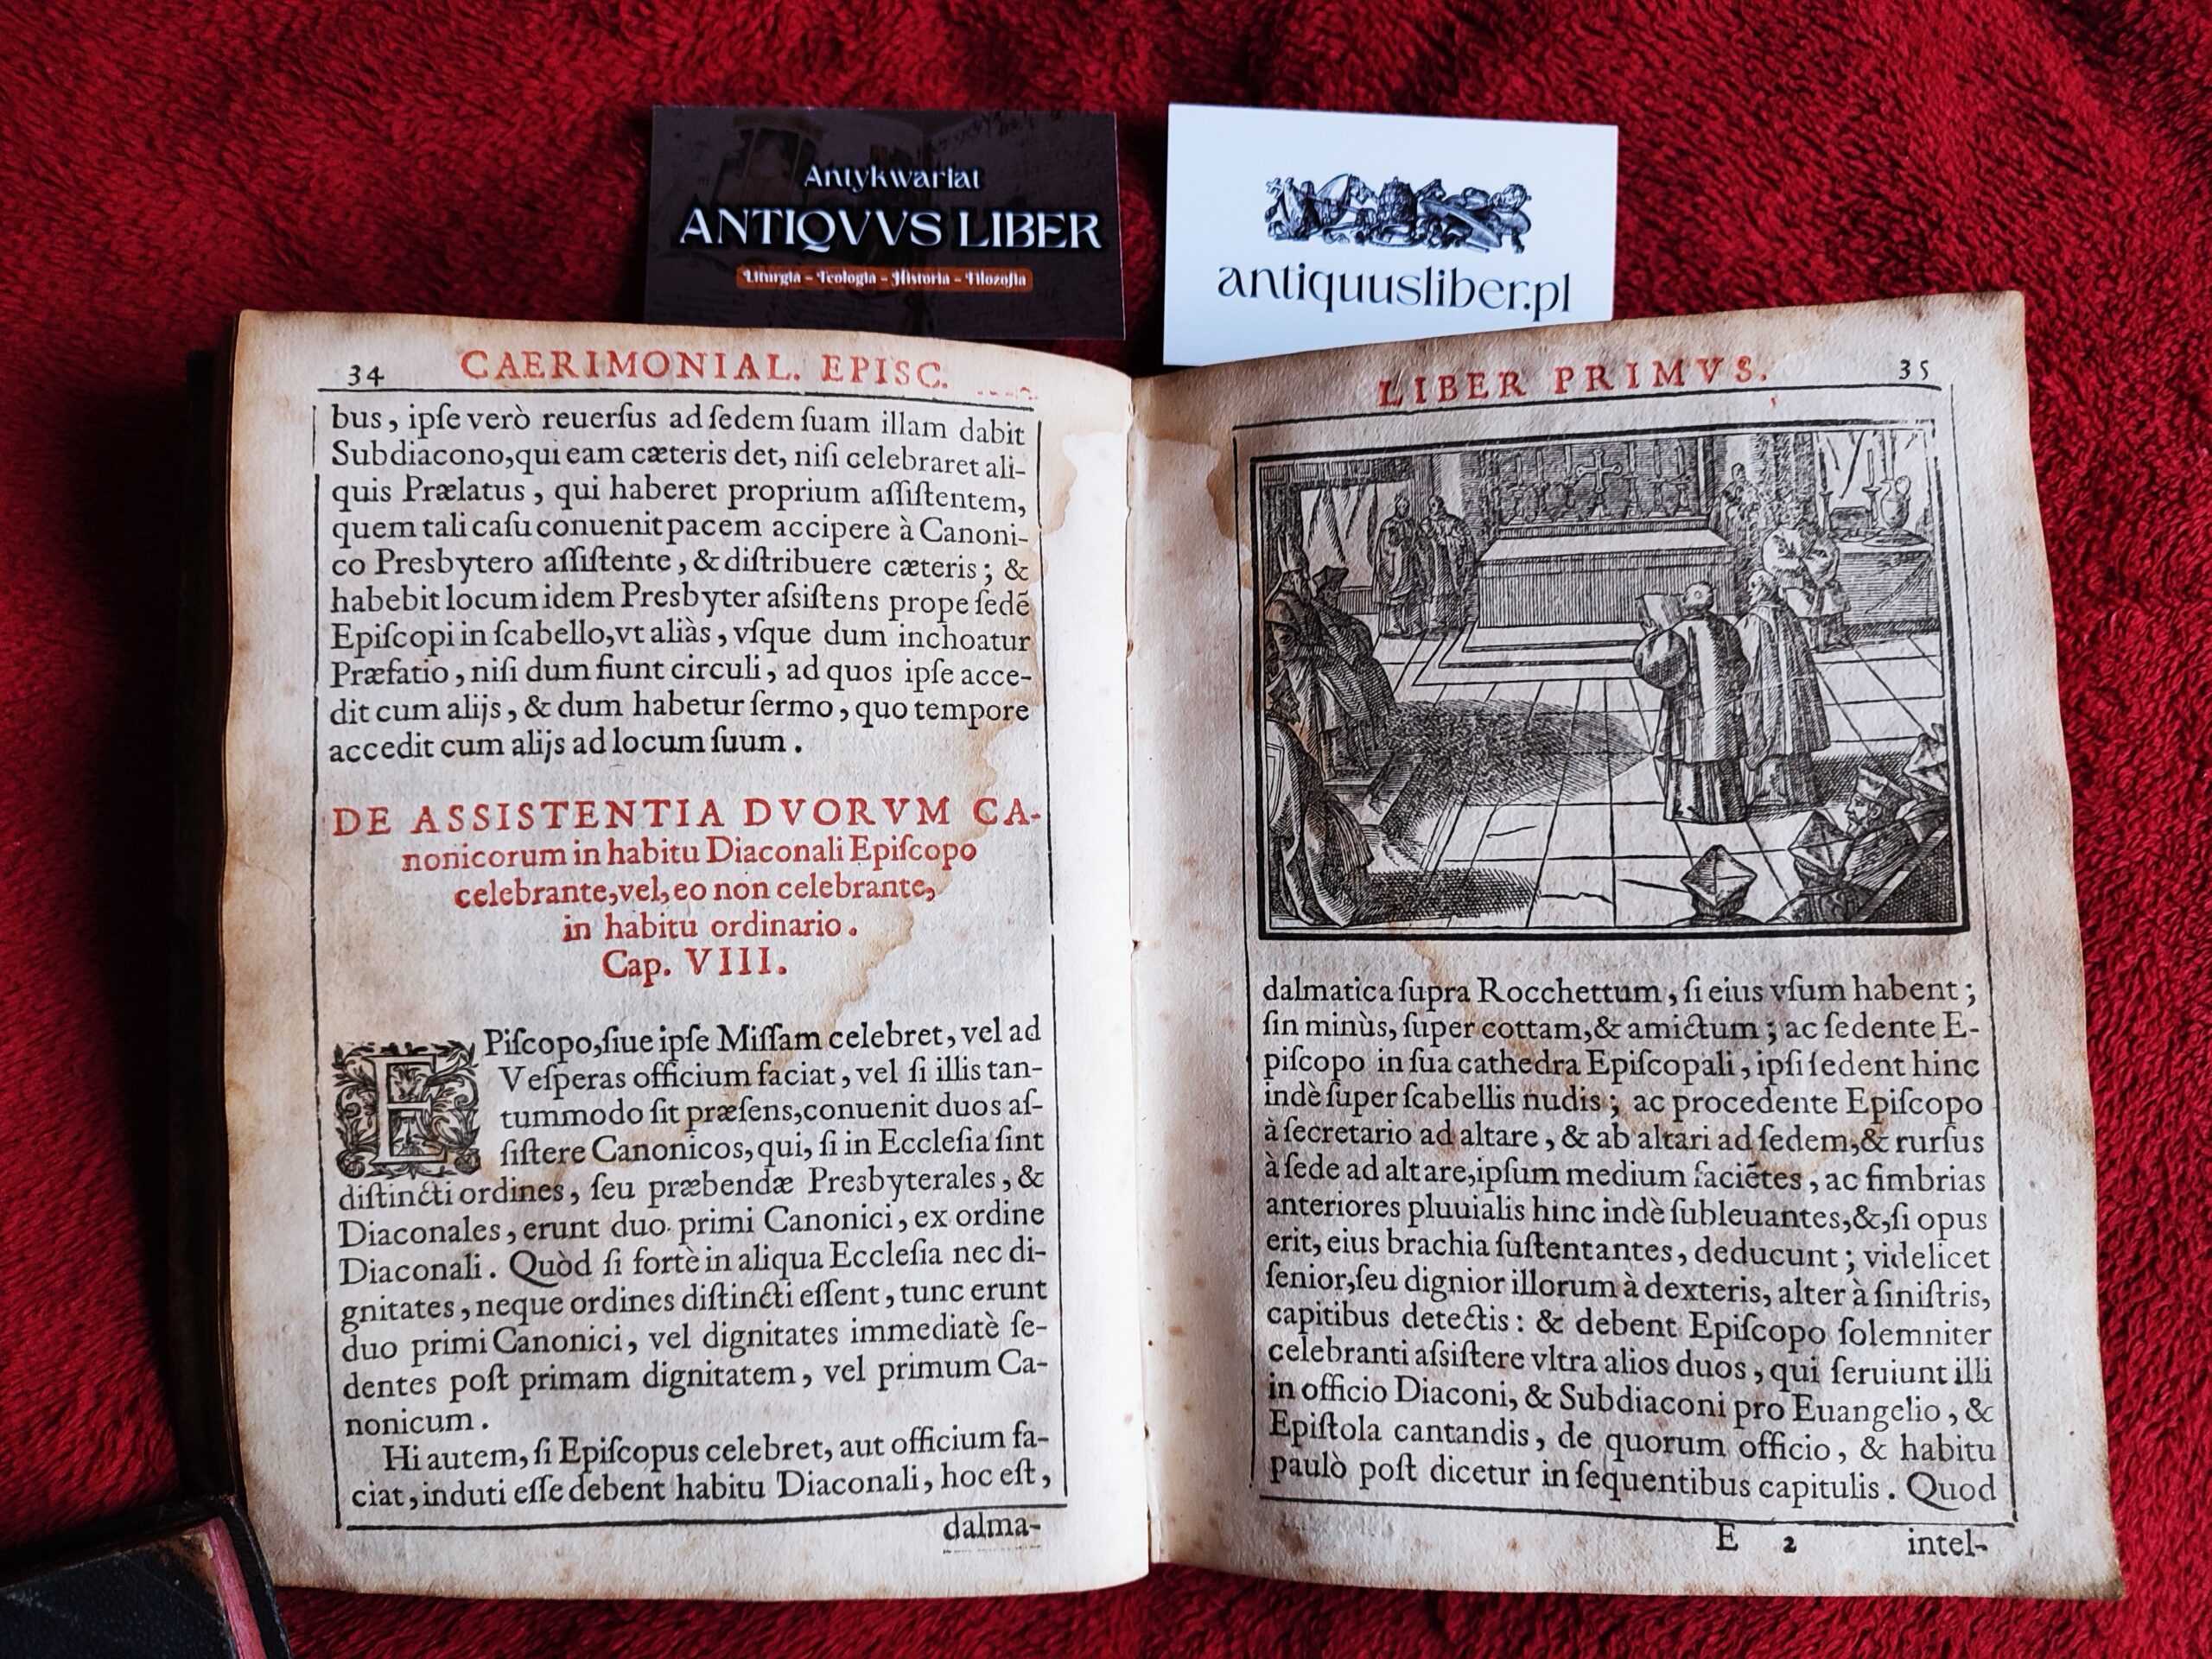 Antykwariat
ANTIQVVS LIBER
Liturgia - Teologia - Historia - Filozofia
antiquusliber.pl
34 CAERIMONIAL. EPISC.
bus, ipſe verò reuerſus ad ſedem ſuam illam dabit
Subdiacono,qui eam cæteris det, niſi celebraret ali-
quis Prælatus, qui haberet proprium aſſiſtentem,
quem tali caſu conuenit pacem accipere à Canoni-
co Presbytero aſſiſtente, & diſtribuere cæteris; &
habebit locum idem Presbyter aſsiſtens prope ſedē
Epiſcopi in ſcabello,vt aliàs, vſque dum inchoatur
Præfatio, niſi dum fiunt circuli, ad quos ipſe acce-
dit cum alijs, & dum habetur ſermo, quo tempore
accedit cum alijs ad locum ſuum.
DE ASSISTENTIA DVORVM CA-
nonicorum in habitu Diaconali Epiſcopo
celebrante,vel, eo non celebrante,
in habitu ordinario.
Cap. VIII.
EPiſcopo,ſiue ipſe Miſſam celebret, vel ad
Veſperas officium faciat, vel ſi illis tan-
tummodo ſit præſens,conuenit duos aſ-
ſiſtere Canonicos, qui, ſi in Eccleſia ſint
diſtincti ordines, ſeu præbendæ Presbyterales, &
Diaconales, erunt duo primi Canonici, ex ordine
Diaconali. Quòd ſi fortè in aliqua Eccleſia nec di-
gnitates, neque ordines diſtincti eſſent, tunc erunt
duo primi Canonici, vel dignitates immediatè ſe-
dentes poſt primam dignitatem, vel primum Ca-
nonicum.
Hi autem, ſi Epiſcopus celebret, aut officium fa-
ciat, induti eſſe debent habitu Diaconali, hoc eſt,
dalma-
LIBER PRIMVS. 35
dalmatica ſupra Rocchettum, ſi eius vſum habent;
ſin minùs, ſuper cottam,& amictum; ac ſedente E-
piſcopo in ſua cathedra Epiſcopali, ipſi ſedent hinc
indè ſuper ſcabellis nudis; ac procedente Epiſcopo
à ſecretario ad altare, & ab altari ad ſedem,& rurſus
à ſede ad altare,ipſum medium faciētes, ac fimbrias
anteriores pluuialis hinc indè ſubleuantes,&,ſi opus
erit, eius brachia ſuſtentantes, deducunt; videlicet
ſenior,ſeu dignior illorum à dexteris, alter à ſiniſtris,
capitibus detectis: & debent Epiſcopo ſolemniter
celebranti aſsiſtere vltra alios duos, qui ſeruiunt illi
in officio Diaconi, & Subdiaconi pro Euangelio, &
Epiſtola cantandis, de quorum officio, & habitu
paulò poſt dicetur in ſequentibus capitulis. Quod
E 2 intel-